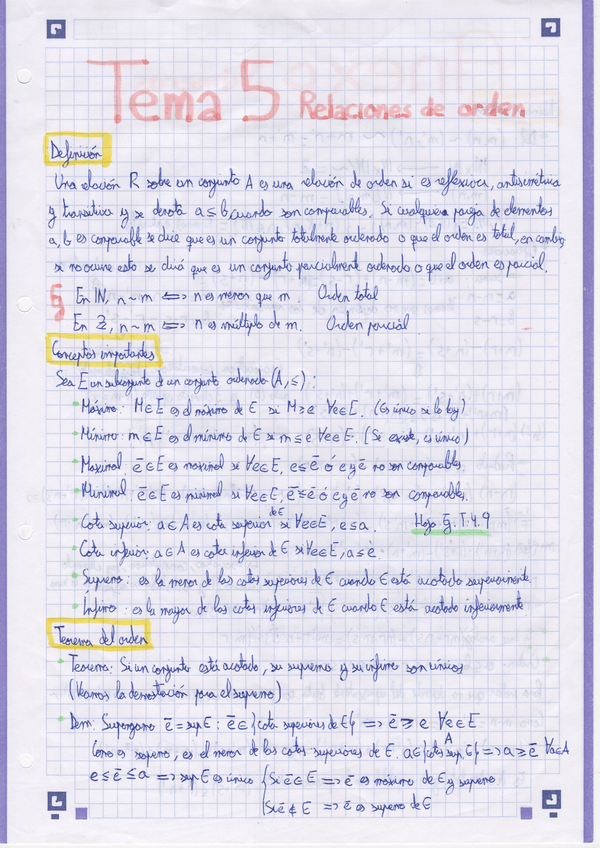 Tema 5 Relaciones de orden
Definición
Una relación R sobre un conjunto A es una relación de orden si es reflexiva, antisimétrica
y transitiva y se denota a ≤ b cuando son comparables. Si cualquier pareja de elementos
a, b es comparable se dice que es un conjunto totalmente ordenado o que el orden es total, en cambio
si no ocurre esto se dirá que es un conjunto parcialmente ordenado o que el orden es parcial.
En ℕ, n ~ m ⟺ n es menor que m. Orden total
En ℤ, n ~ m ⟺ n es múltiplo de m. Orden parcial
Conceptos importantes
Sea E un subconjunto de un conjunto ordenado (A, ≤):
Máximo: M ∈ E es el máximo de E si M ≥ e ∀e ∈ E. (Es único si lo hay)
Mínimo: m ∈ E es el mínimo de E si m ≤ e ∀e ∈ E. (Si existe, es único)
Maximal: ē ∈ E es maximal si ∀e ∈ E, e ≤ ē ó e y ē no son comparables.
Minimal: ē ∈ E es minimal si ∀e ∈ E, ē ≤ e ó e y ē no son comparables.
Cota superior: a ∈ A es cota superior de E si ∀e ∈ E, e ≤ a. Hoja
Cota inferior: a ∈ A es cota inferior de E si ∀e ∈ E, a ≤ e.
Supremo: es la menor de las cotas superiores de E cuando E está acotado superiormente
Ínfimo: es la mayor de las cotas inferiores de E cuando E está acotado inferiormente
Teorema del orden
Teorema: Si un conjunto está acotado, su supremo y su ínfimo son únicos
(Veamos la demostración para el supremo)
Dem: Supongamos ē = sup E: ē ∈ {cotas superiores de E} ⟹ ē ≥ e ∀e ∈ E
Como es supremo, es el menor de las cotas superiores de E. a ∈ {cotas sup. E} ⟹ a ≥ ē ∀a ∈ A
e ≤ ē ≤ a ⟹ sup E es único { Si ē ∈ E ⟹ ē es máximo de E y supremo
Si ē ∉ E ⟹ ē es supremo de E